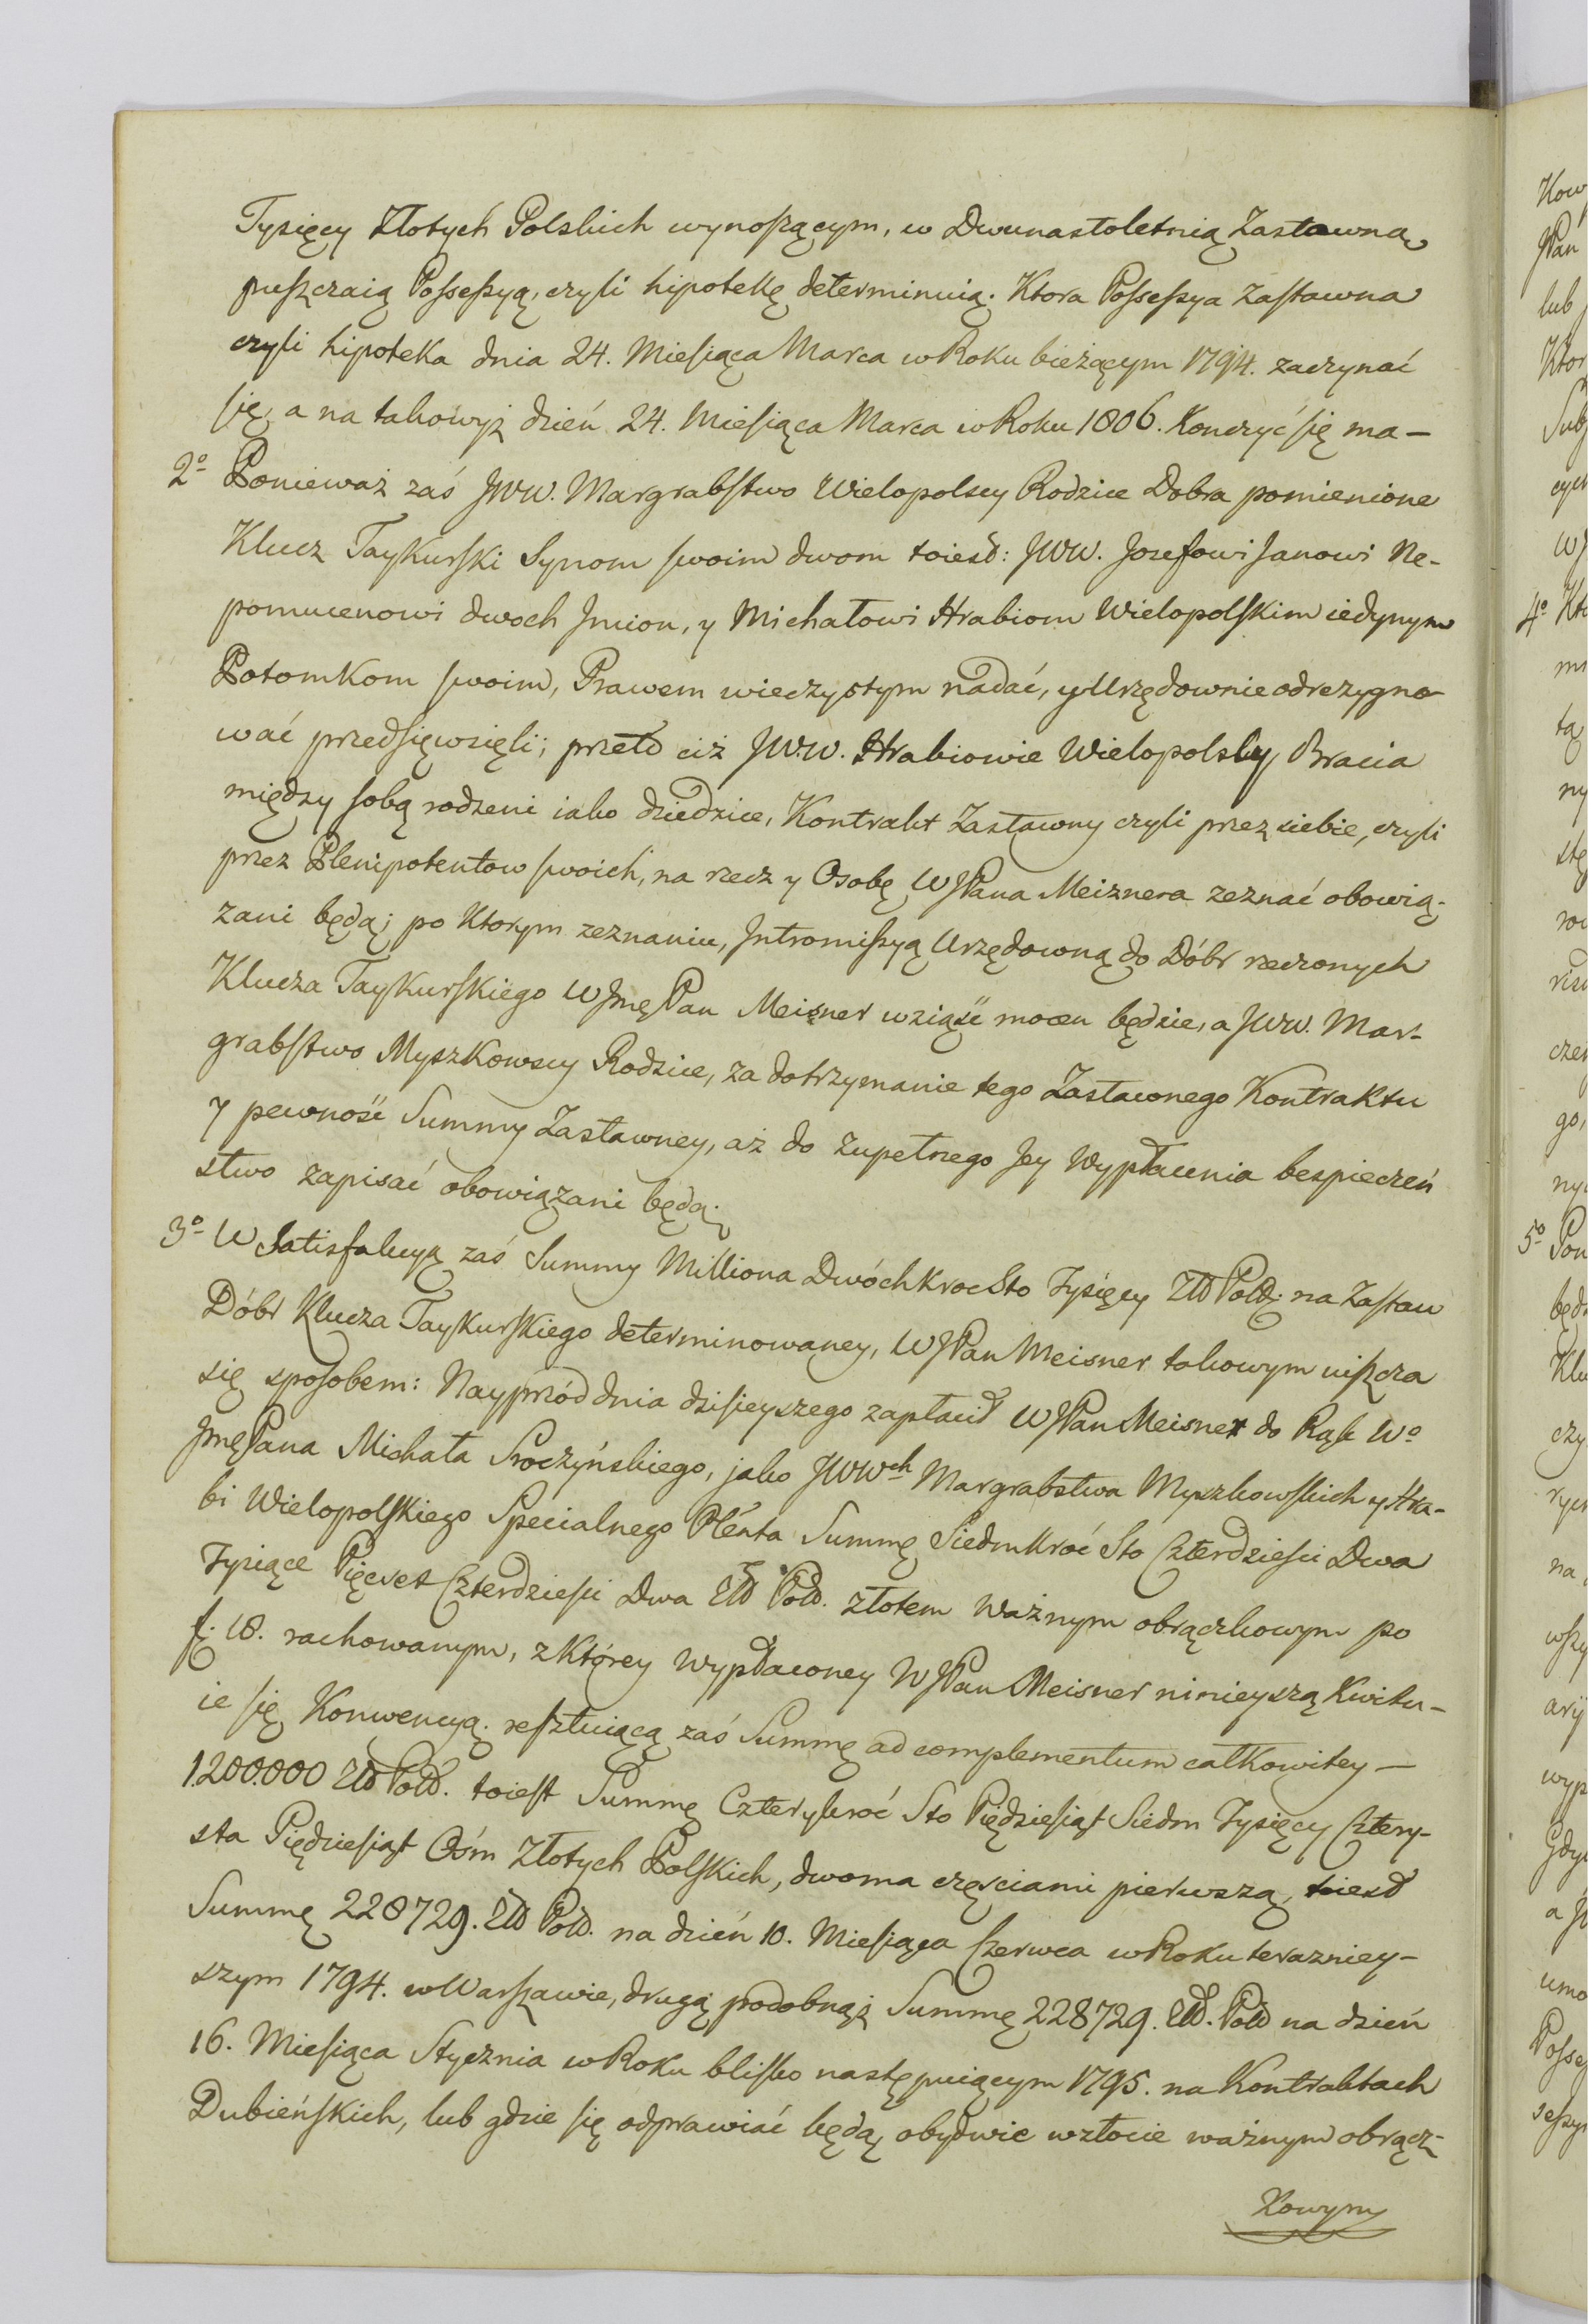 Tysięcy Złotych Polskich wynoszącym, w Dwunastoletnią Zastawną
puszczaią Possessyą, czyli hipotekę determinuią. Ktora Possessya Zastawna
czyli hipoteka dnia 24. Miesiąca Marca w Roku bieżącym 1794. zaczynać
się, a na takowyż dzień 24. Miesiąca Marca w Roku 1806. Konczyć się ma —
2º Ponieważ zaś JWW. Margrabstwo Wielopolscy Rodzice Dobra pomienione
Klucz Taykurski Synom swoim dwom toiesd: JWW. Jozefowi Janowi Ne-
pomucenowi dwoch Jmion, y Michałowi Hrabiom Wielopolskim iedynym
Potomkom swoim, Prawem wieczystym nadać, y Urzędownie odrezygno-
wać przedsięwzięli; przeto ciż JWW. Hrabiowie Wielopolscy Bracia
między sobą rodzeni iako dziedzice, Kontrakt Zastawny czyli przez siebie, czyli
przez Plenipotentow swoich, na rzecz y Osobę WJPana Meiznera zeznać obowią-
zani będą; po Ktorym zeznaniu, Jntromissyą Urzędowną do Dóbr rzeczonych
Klucza Taykurskiego WJmę Pan Meisner wziąść mocen będzie, a JWW. Mar-
grabstwo Myszkowscy Rodzice, za dotrzymanie tego Zastawnego Kontraktu
y pewność Summy Zastawney, aż do zupełnego Jey Wypłacenia bespieczeń
stwo zapisać obowiązani będą;
3º W Satisfakcyą zaś Summy Milliona Dwóchkroć Sto Tysięcy Złł Poll: na Zastaw
Dóbr Klucza Taykurskiego determinowaney, WJPan Meisner takowym uiszcza
się sposobem: Nayprzód dnia dzisieyszego zapłacił WJPan Meisner do Rąk Wº
JmęPana Michała Sroczyńskiego, jako JWWch Margrabstwa Myszkowskich y Hra-
bi Wielopolskiego Specialnego Plénta Summę Siedmkroć Sto Czterdziesci Dwa
Tysiące Pięcset Czterdziesci Dwa Złł Poll. złotem ważnym obrączkowym po
f. 18. rachowanym, z Którey wypłaconey WJPan Meisner ninieyszą Kwitu-
ie się Konwencyą. resztuiącą zaś Summę ad complementum całkowitey —
1.200.000 Złł Poll. toiest Summę Czterykroć Sto Pięćdziesiąt Siedm Tysięcy Cztery-
sta Pięćdziesiąt Ośm Złotych Polskich, dwoma częsciami pierwszą, toiesd
Summę 228729. Złł Poll. na dzień 10. Miesiąca Czerwca w Roku terazniey-
szym 1794. w Warszawie, drugą podobnąż Summę 228729. Złł. Poll na dzień
16. Miesiąca Stycznia w Roku blisko następuiącym 1795. na Kontraktach
Dubieńskich, lub gdzie się odprawiać będą, obydwie w złocie ważnym obrącz-
kowym